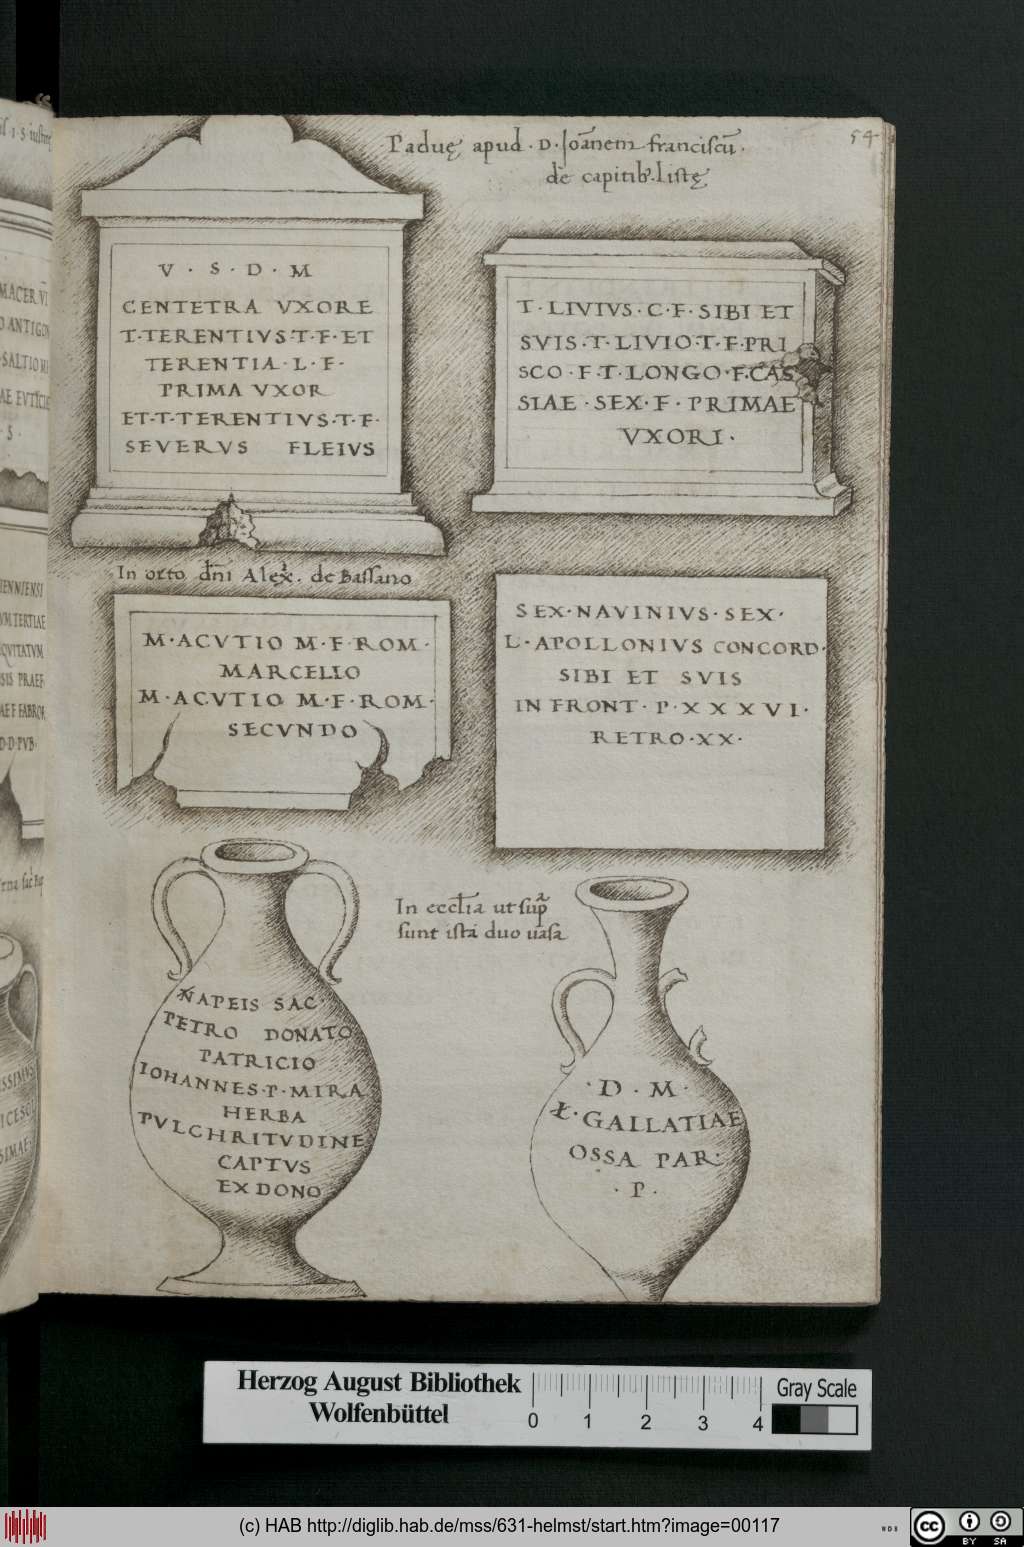 Paduę apud · D · Joānem franciscū ·
de capitib. listę
54
V · S · D · M
CENTETRA VXORE
T·TERENTIVS·T·F·ET
TERENTIA·L·F·
PRIMA VXOR
ET·T·TERENTIVS·T·F·
SEVERVS FLEIVS
T·LIVIVS·C·F·SIBI ET
SVIS·T·LIVIO·T·F·PRI
SCO·F·T·LONGO·F·CAS
SIAE·SEX·F·PRIMAE
VXORI·
In orto dn̄i Alex̄. de Bassano
M·ACVTIO M·F·ROM·
MARCELLO
M·ACVTIO M·F·ROM·
SECVNDO
SEX·NAVINIVS·SEX·
L·APOLLONIVS CONCORD·
SIBI ET SVIS
IN FRONT·P·XXXVI·
RETRO·XX·
In eccl̄ia ut sup̄
sunt ista duo uasa
NAPEIS SAC·
PETRO DONATO
PATRICIO
IOHANNES·P·MIRA
HERBA
PVLCHRITVDINE
CAPTVS
EX DONO
·D·M·
Ł·GALLATIAE
OSSA PAR:
·P·
MACER VI
O ANTIGON
SALTIO
AE EVTICIE
·S·
IENNIENSI
VM TERTIAE
QVITATVM
SIS PRAEF
AE F FABROR
D·D·PVB·
ISSIMVS
ICESC
SIMAE
Herzog August Bibliothek
Wolfenbüttel
0 1 2 3 4
Gray Scale
(c) HAB http://diglib.hab.de/mss/631-helmst/start.htm?image=00117
WDB
cc
BY SA